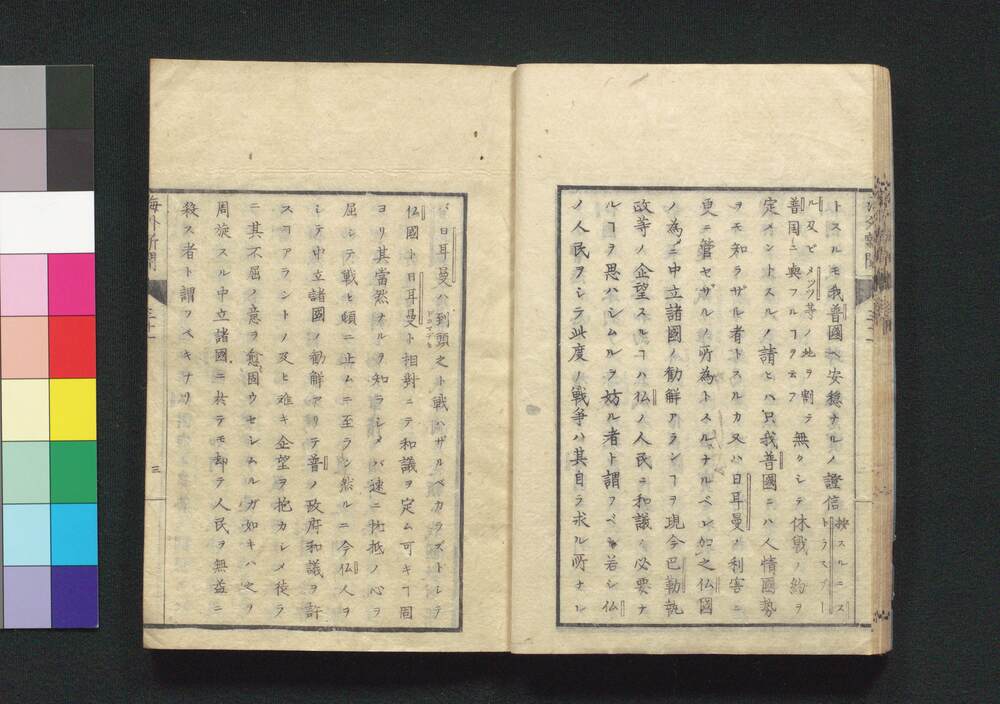 トスルモ我普國ヘ安穏ナルノ證信 按スルニストラスブー
ル及ヒメッツ等ノ地ヲ割テ普國ニ與フルヿヲ云フ 無クシテ休戰ノ約ヲ
定メントスルノ請ヒハ只我普國ニハ人情國勢
ヲモ知ラザル者トスルカ又ハ日耳曼ノ利害ニ
更ニ管セザルノ所為トスルナルベシ加之仏國
ノ為ニ中立諸國ノ勧解アランヿヲ現今巴勒執
政等ノ企望スルヿハ仏ノ人民ニ和議ノ必要ナ
ルヿヲ思ハシムルヲ妨ル者ト謂フベシ若シ仏
ノ人民ヲシテ此度ノ戰争ハ其自ラ求ル所ナレ
バ日耳曼ハ到頭之ト戰ハザルベカラズトシテ
仏國ト日耳曼ト相對ニテ和議ヲ定ム可キヿ固
ヨリ其當然ナルヲ知ラシメバ速ニ抗抵ノ心ヲ
屈シテ戰ヒ頓ニ止ムニ至ラン然ルニ今仏人ヲ
シテ中立諸國ノ勧解アリテ普ノ政府和議ヲ許
スヿアラントノ及ヒ难キ企望ヲ抱カシメ徒ラ
ニ其不屈ノ意ヲ愈固ウセシムルガ如キハ之ヲ
周旋スル中立諸國ニ於テモ却テ人民ヲ無益ニ
殺ス者ト謂フベキナリ
海外新聞
三十一
三